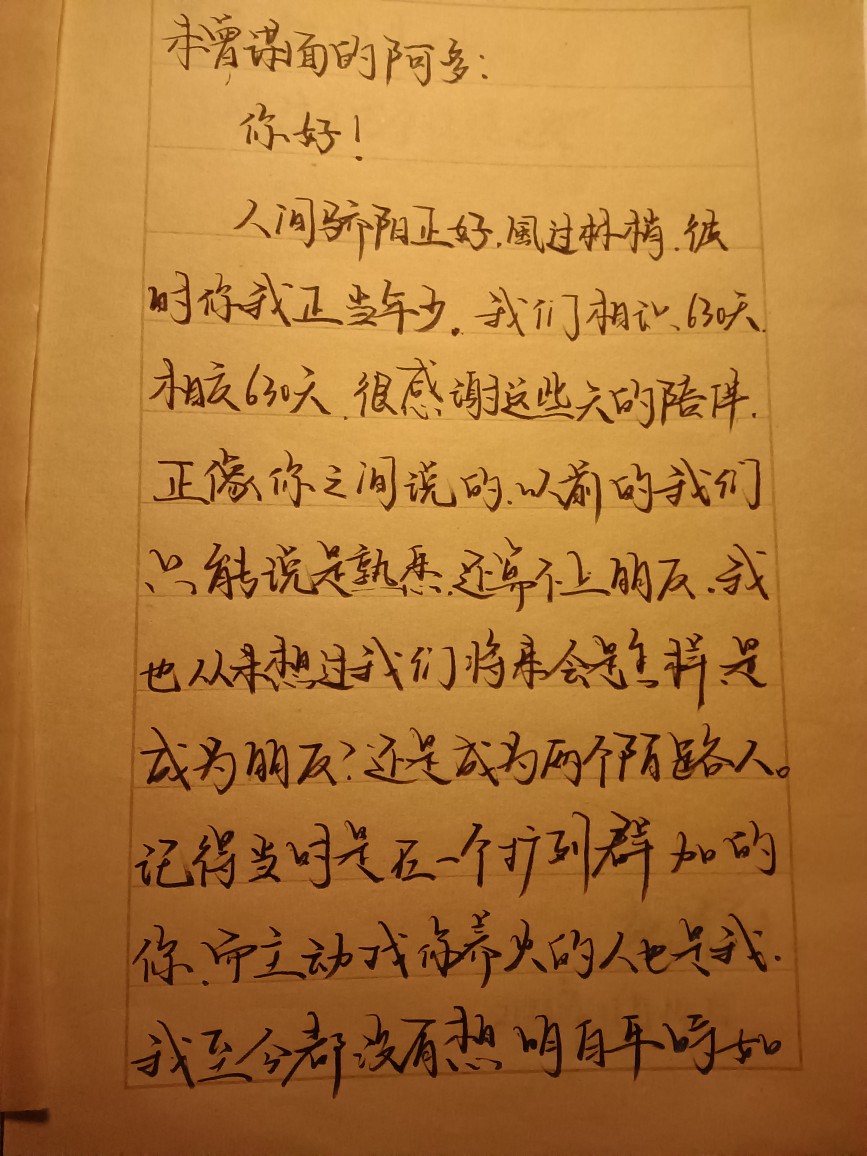 未曾谋面的阿多:
你好!
人间骄阳正好,風过林梢,彼
时你我正当年少。我们相识630天,
相交630天,很感谢这些天的陪伴,
正像你之间说的,以前的我们
只能说是熟悉,还算不上朋友,我
也从未想过我们将来会是怎样,是
成为朋友?还是成为两个陌路人。
记得当时是在一个扩列群加的
你,而主动找你养火的人也是我,
我至今都没有想明白平時如